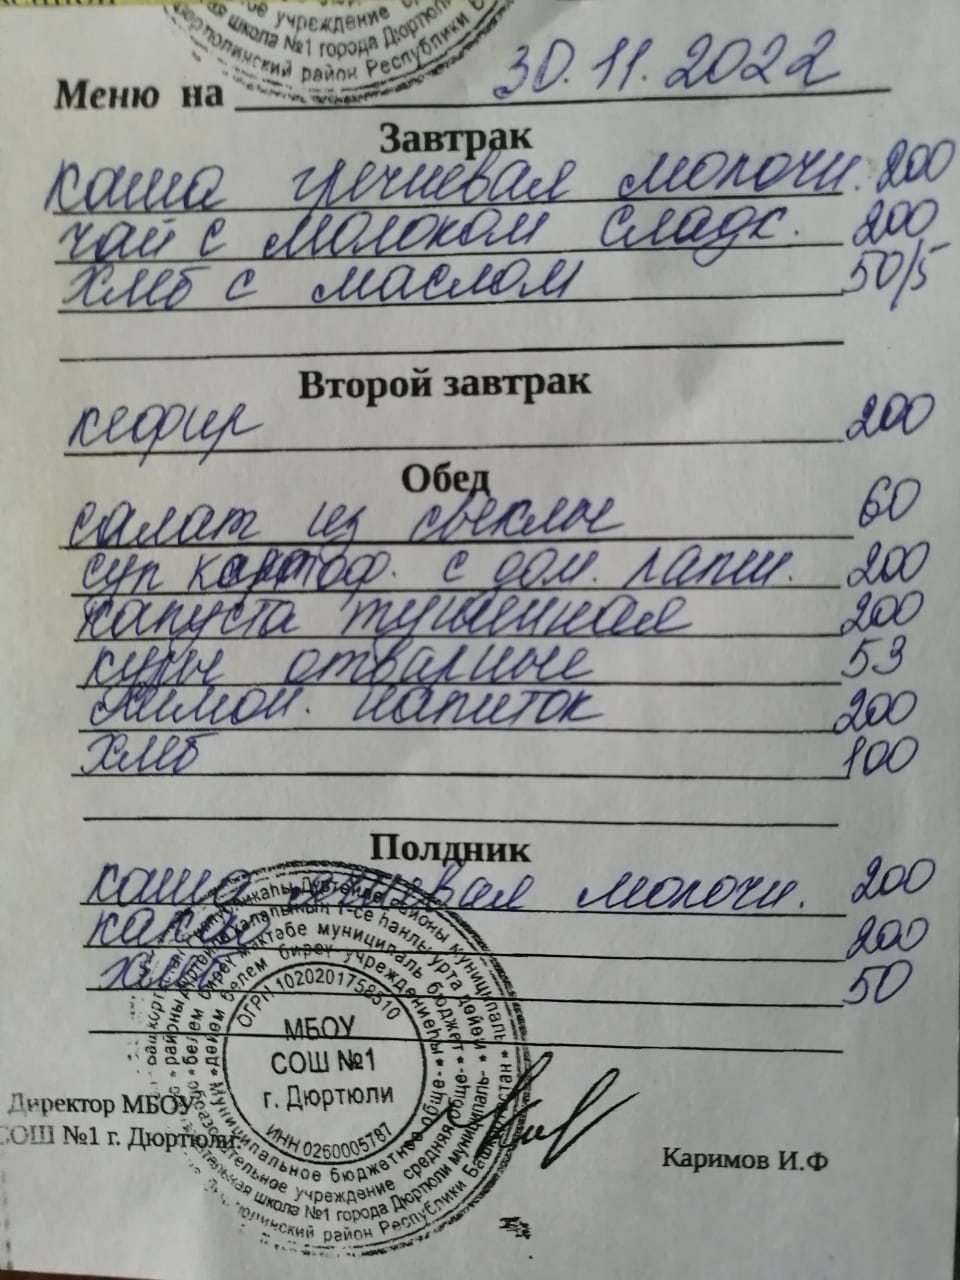 учреждение
школа №1 города Дюртюли
Дюртюлинский район Республики
Меню на 30.11.2022
Завтрак
каша гречневая молочн. 200
чай с молоком сладк. 200
хлеб с маслом 50/5
Второй завтрак
кефир 200
Обед
салат из свеклы 60
суп картоф. с дом. лапш. 200
капуста тушенная 200
куры отварные 53
Лимон. напиток 200
хлеб 100
Полдник
каша молочн. 200
200
хлеб 50
ОГРН 1020201758510
МБОУ
СОШ №1
г. Дюртюли
ИНН 0260005787
муниципальное бюджетное обще-
образовательное учреждение средняя обще-
школа №1 города Дюртюли муниципаль-
район Республики Башкортостан
Директор МБОУ
СОШ №1 г. Дюртюли
Каримов И.Ф